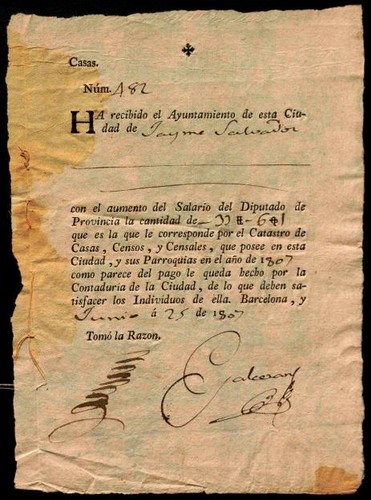 Casas.
Núm. 482
HA recibido el Ayuntamiento de esta Ciu-
dad de Jayme Salvador
con el aumento del Salario del Diputado de
Provincia la cantidad de
que es la que le corresponde por el Catastro de
Casas, Censos, y Censales, que posee en esta
Ciudad, y sus Parroquias en el año de 1807
como parece del pago le queda hecho por la
Contaduria de la Ciudad, de lo que deben sa-
tisfacer los Individuos de ella. Barcelona, y
Junio á 25 de 1807
Tomó la Razon.
Galceran